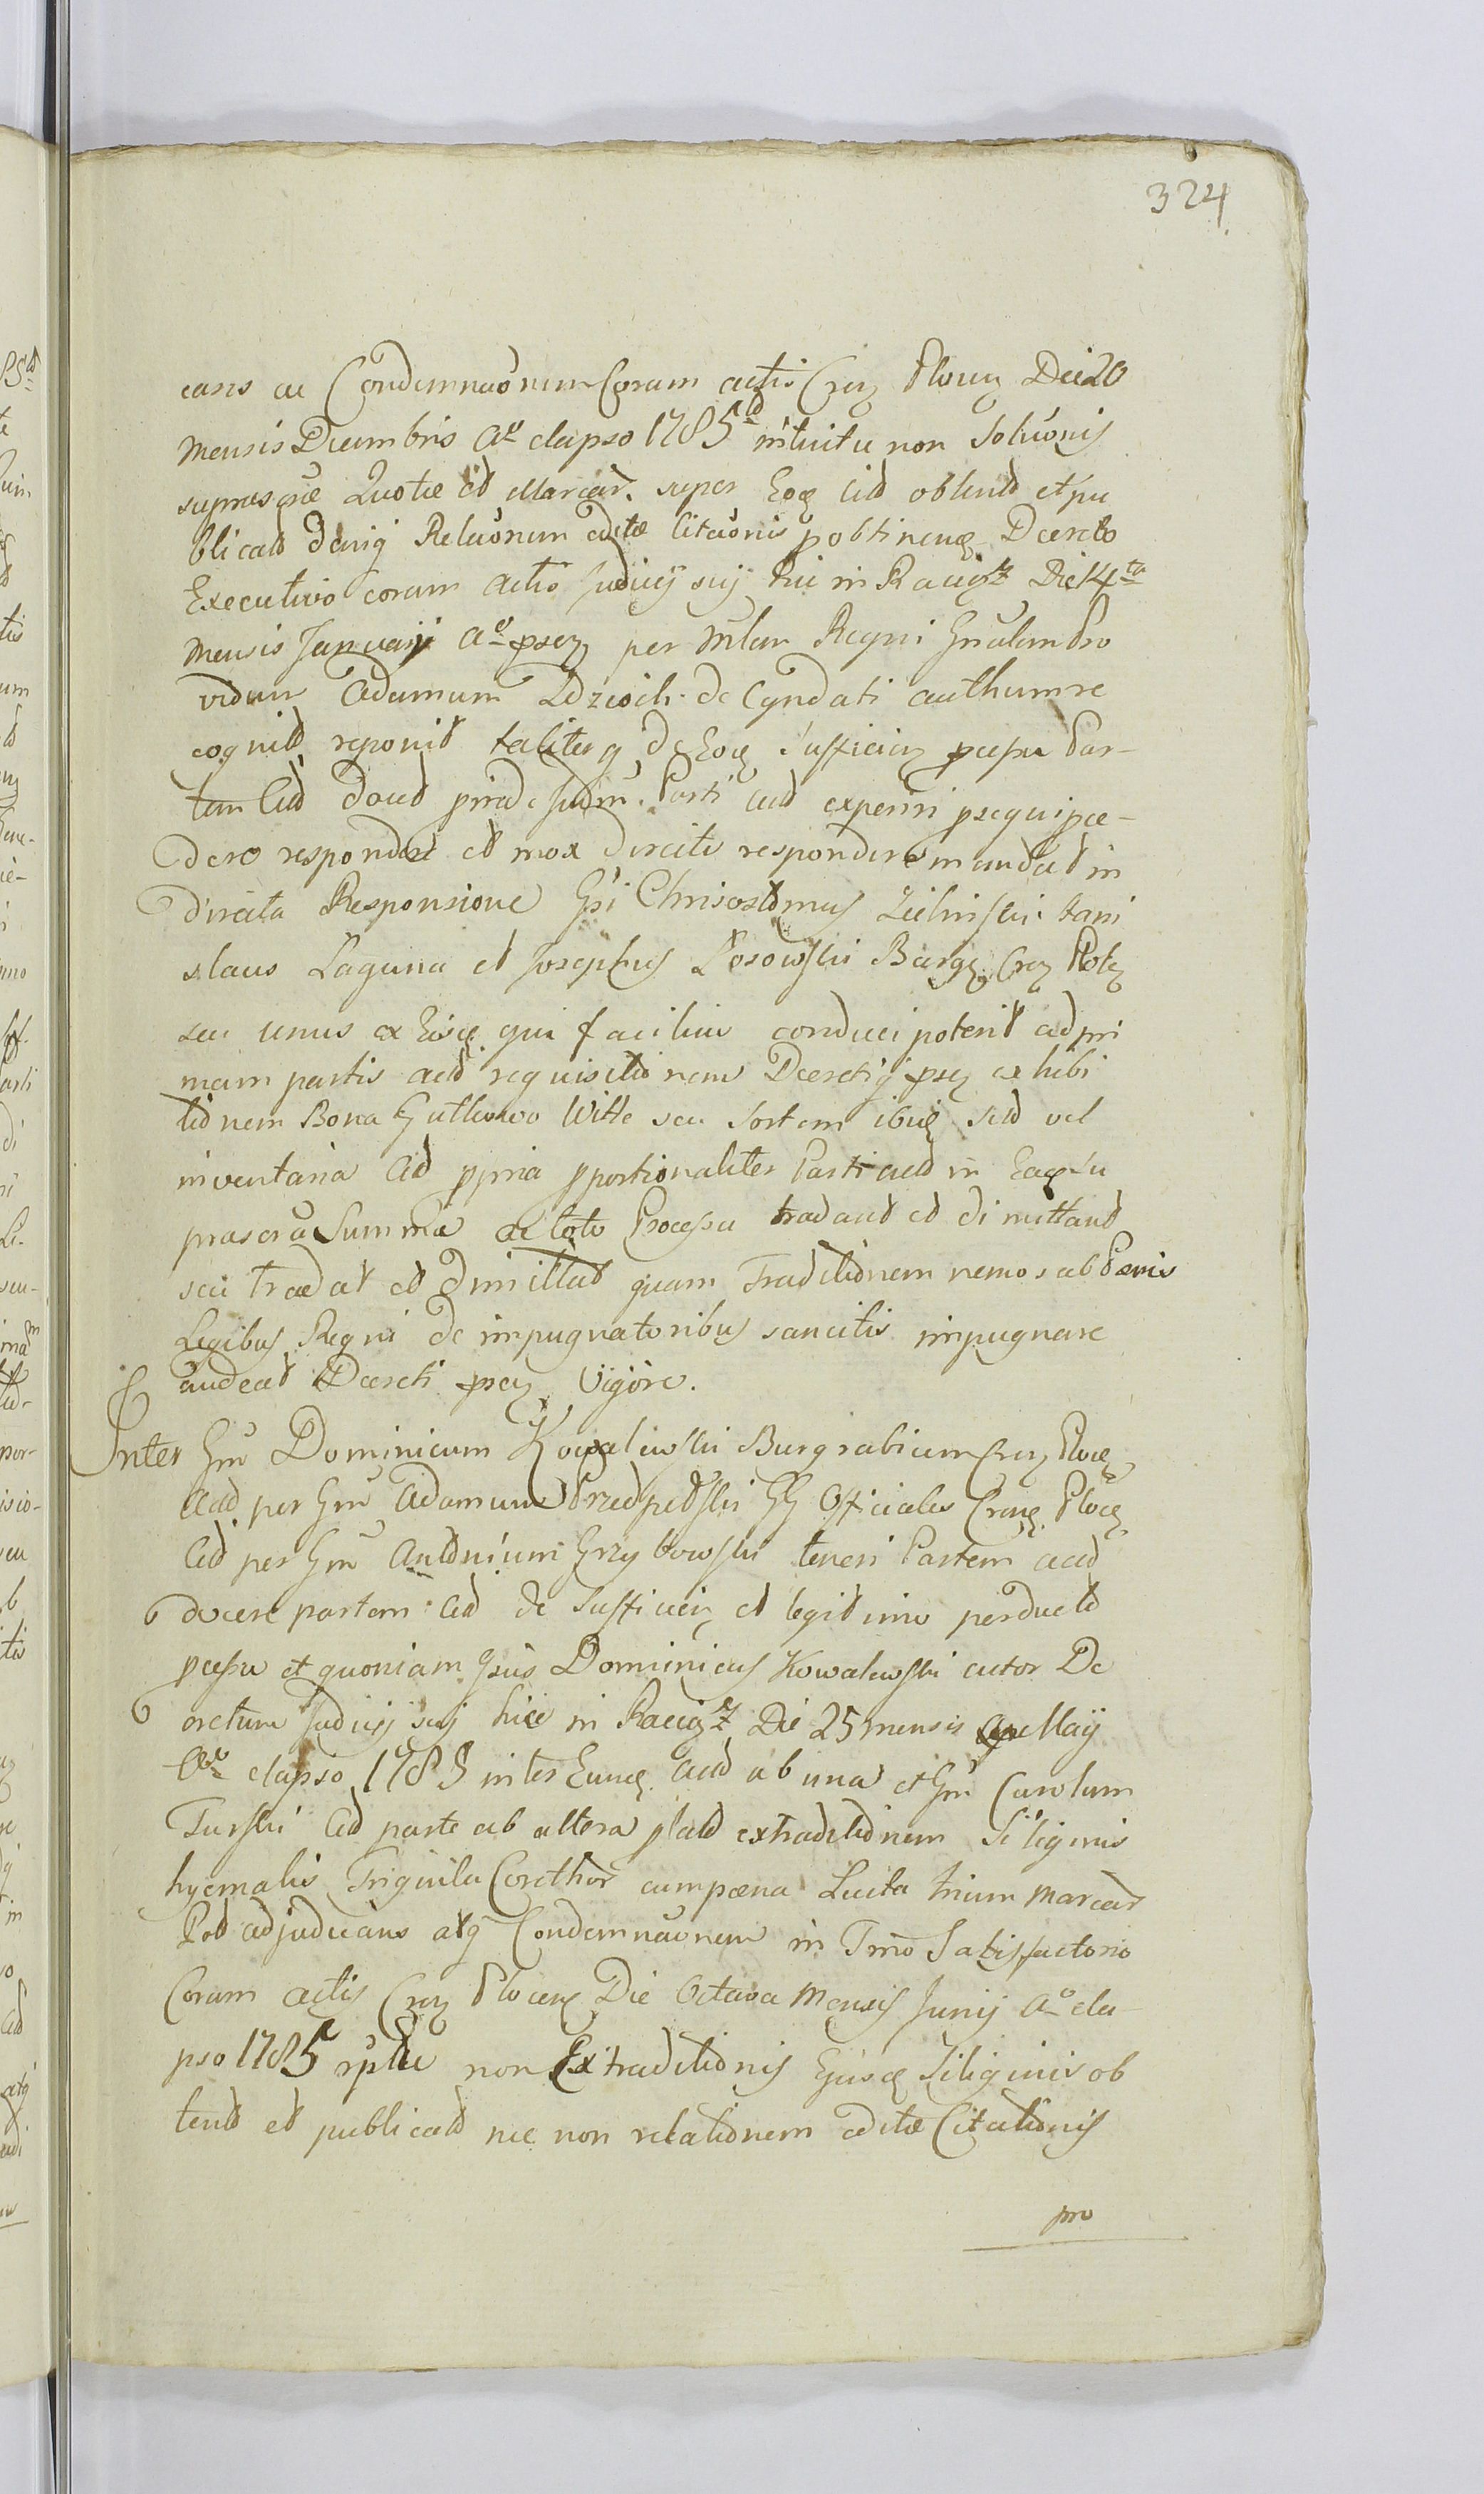 324
cans ac Condemnaõnem Coram actis Crẽn Plocẽn Die 20
Mensis Decembris Aº elapso 1785tô intuitu non Soluõnis
suprascrae Quotae et Marcar. super Eoq Citô obtentô et pu
blicatô deniq Relaõnem editae Citaõnis p obtinenq Decreto
Executivo coram actis Judicij suij hic in Raciąż Die 14ta
Mensis Januarij Aº psen per Mĩlem Regni Gñalem Pro
vidum Adamum Idzioch de Cyndati authumve
cognitô reponit taliterq de Eoq sufficien pcessu Par-
tem Citô docuô Judm. Parti actô experiri psequi pce-
dere respondere et mox directe respondere mandat in
directa Responsione Gsi Chrisostomus Zielinski Stani
slaus Laguna et Josephus Łosowski Burg Crẽn Plocẽn
seu unus ex Eisq qui facilius conduci poterit ad pri
mam partis actô requisitionem Decretiq psen exhibi
tionem Bona Gutkowo Witte seu Sortem ibiq sitô vel
inventaria Citô ppria pportionaliter Parti actô in Eaq Su
prascra Summa ac toto Processu tradant et dimittant
seu tradat et dimittat quam Traditionem nemo sub Paenis
Legibus Regni de impugnatoribus sancitis impugnare
audeat Decreti psen Vigore.
Inter Gm Dominicum Kowalewski Burgrabium Crẽn Plocẽn
Actô per Gm Adamum GG Officiales Crenq Plocẽn
Citô per Gm Antonium Grzybowski teneri Partem actô
docere partem Citô de Sufficien et legitimo perductô
pcessu et quoniam Gsus Dominicus Kowalewski actor De
cretum Judicij suij hicce in Raciąż Die 25 mensis Maij
Aº elapso 1785 inter Eumq actô ab una et Gm Carolum
Turski Citô parte ab altera platô extraditionem Siliginis
hyemalis Triginta Corethor cum paena Lucta trium Marcar
Pol adjudicans atq Condemnaõnem in Tmõ Satisfactorio
Coram actis Crẽn Plocen Die Octava Mensis Junij Aº ela-
pso 1785 rptu non Extraditionis Ejusq Siliginis ob
tentô et publicatô nec non relationem editae Citationis
pro